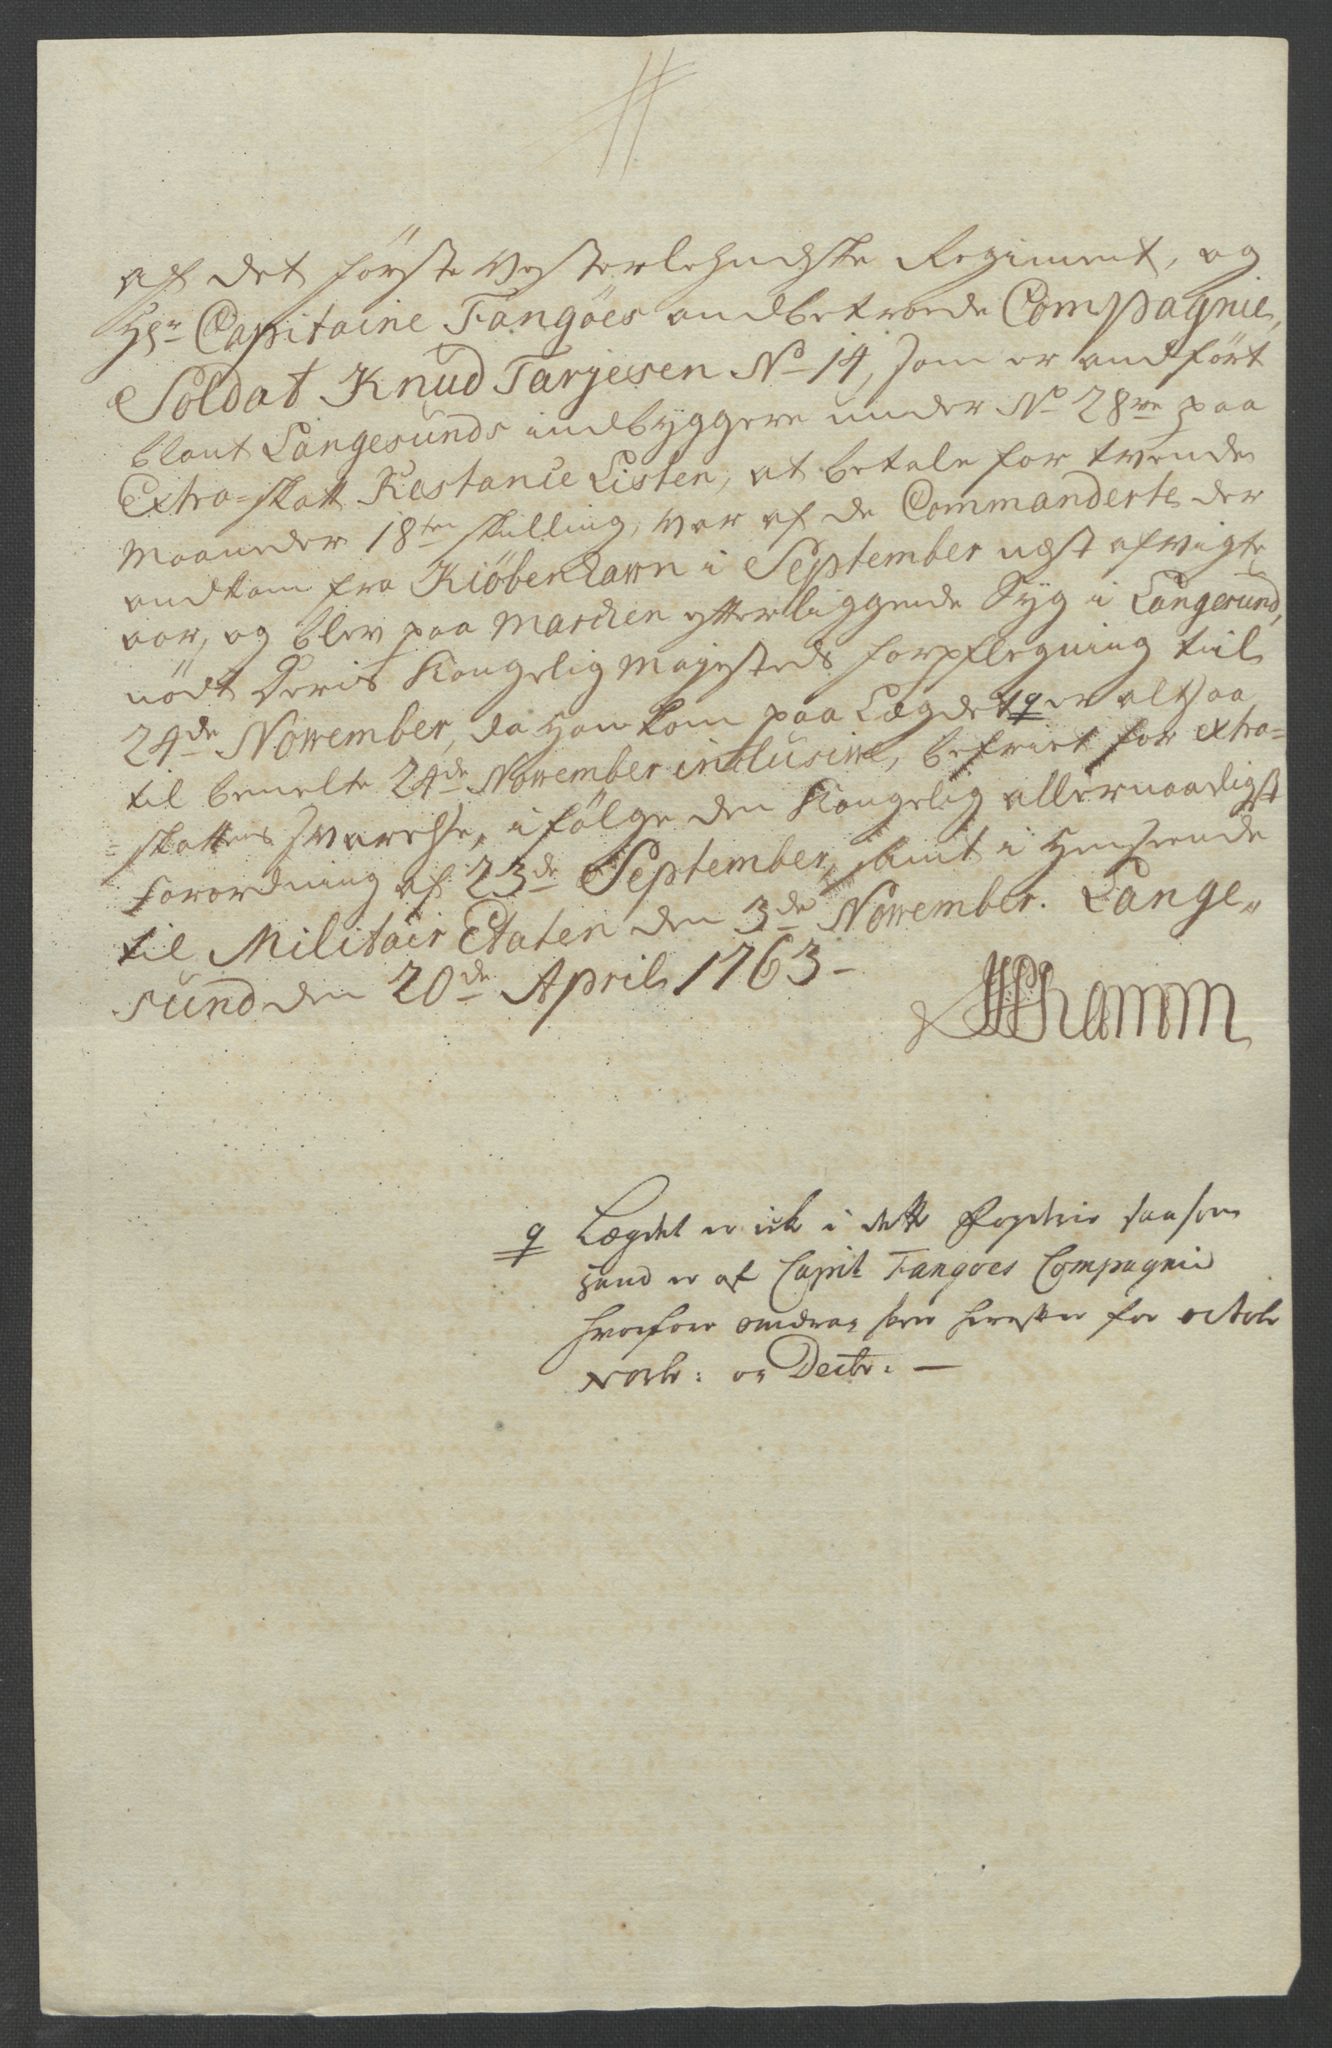 af det förste Vesterlehnske Regiment, og
Hr Capitaine Fangöes andbetroede Compagnie,
Soldat Knud Tarjesen No 14, som er andfört
blant Langesunds indbyggere under No 28ve paa
Extra-skatt Restance Listen, at betale for tvende
Maaneder 18ten skilling, var af de Commanderte der
andkom fra Kiöbenhawn i September næst afvigte
aar, og blev paa Marchen efterliggende Syg i Langesund,
nödt Deris Kongelig Majesteds forpflegning till
24de November, da han kom paa Lægdet q er altsaa
til bemelte 24de November inclusive, befriet for extra-
-skattens svarelse, i fölge den Kongelig allernaadigst
forordning af 23de September, samt i henseende
til Militair Etaten den 3de November. Lange„
sund den 20de April 1763-
Ramm
q Lægdet er ick i dette Fogderie saasom
hand er af Capit Fangoes Compagnie
hvorfore omdrag skeer herefter for octobr
Novbr: og Decbr: —